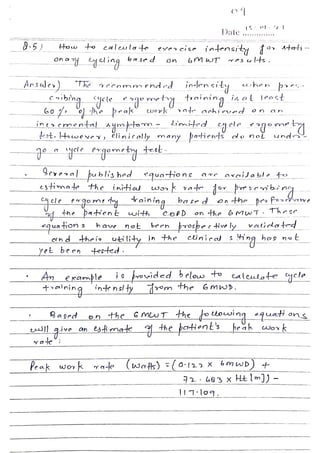 Date
Q.5) How to calculate exercise intensity for stati-
onary cycling based on 6MWT results.
Answer) The recommended intensity when pres-
cribing cycle ergometry training is at least
60% of the peak work rate achieved on an
incremental symptom - limited cycle ergometry
test. However, clinically many patients do not under-
go a cycle ergometry test.
• Several published equations are available to
estimate the initial work rate for prescribing
cycle ergometry training based on the performance
of the patient with COPD on the 6MWT. These
equations have not been prospectively validated
and their utility in the clinical setting has not
yet been tested.
• An example is provided below to calculate cycle
training intensity from the 6MWD.
• Based on the 6MWT the following equations
will give an estimate of the patient's peak work
rate:
Peak work rate (watts) = (0.122 x 6MWD) +
72.683 x Ht [m]) -
117.109.